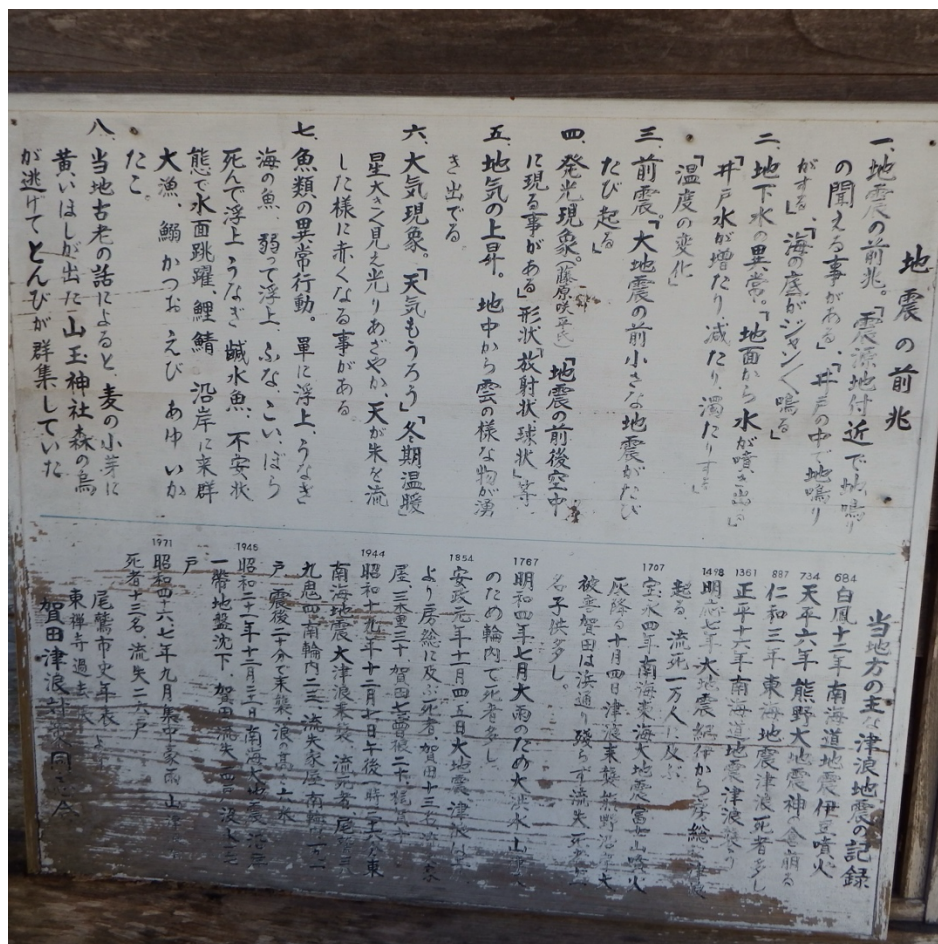 地震の前兆
一、地震の前兆。「震源地付近で地鳴り
の聞える事がある」、「井戸の中で地鳴り
がする」「海の底がジャン〱鳴る」
二、地下水の異常。「地面から水が噴き出る」
「井戸水が増たり減たり、濁たりする」
「温度の変化」
三、前震。「大地震の前小さな地震がたび
たび起る」
四、発光現象。(藤原咲平氏)「地震の前後空中
に現る事がある」形状「放射状、球状」等
五、地気の上昇。 地中から雲の様な物が湧
き出でる
六、大気現象。「天気もうろう」「冬期温暖」
星大きく見え光りあざやか、天が朱を流
した様に赤くなる事がある
七、魚類の異常行動。 単に浮上、うなぎ
海の魚、弱って浮上、ふな、こい、ぼら
死んで浮上 うなぎ 鹹水魚、不安状
態で水面跳躍、鯉鯖 沿岸に来群
大漁、鰯 かつお えび あゆ いか
たこ。
八、当地古老の話によると、麦の小芽に
黄いほしが出た 山玉神社森の烏
が逃げて とんびが群集していた
当地方の主な津浪地震の記録
684
白鳳十二年南海道地震伊豆噴火
734
天平六年熊野大地震神倉崩る
887
仁和三年東海地震津浪死者多し
1361
正平十六年南海道地震津浪襲う
1498
明応七年大地震紀伊から房総
起る 流死一万人に及ぶ
1707
宝永四年南海東海大地震富士山噴火
灰降る十月四日津浪来襲熊野
被害賀田は浜通り残らず流失死
女子供多し。
1767
明和四年七月大雨のため大洪水山
のため輪内で死者多し
1854
安政元年十一月四、五日大地震津浪
より房総に及ぶ死者賀田十三名
屋、三木里三十 賀田七 曽根二十
1944
昭和十九年十二月七日午後一時 東
南海地震大津浪来襲、流死者、尾
九鬼四 南輪内二三 流失家屋 南輪
戸 震後二十分で来襲、浪の高 六米
1946
昭和二十一年十二月二一日南海大地震
一帯地盤沈下、賀田 流失 四三 浸水
戸
1971
昭和四十六、七年九月集中豪雨 山
死者十三名、流失二六戸
尾鷲市史年表 より
東禅寺過去
賀田津浪 同 会